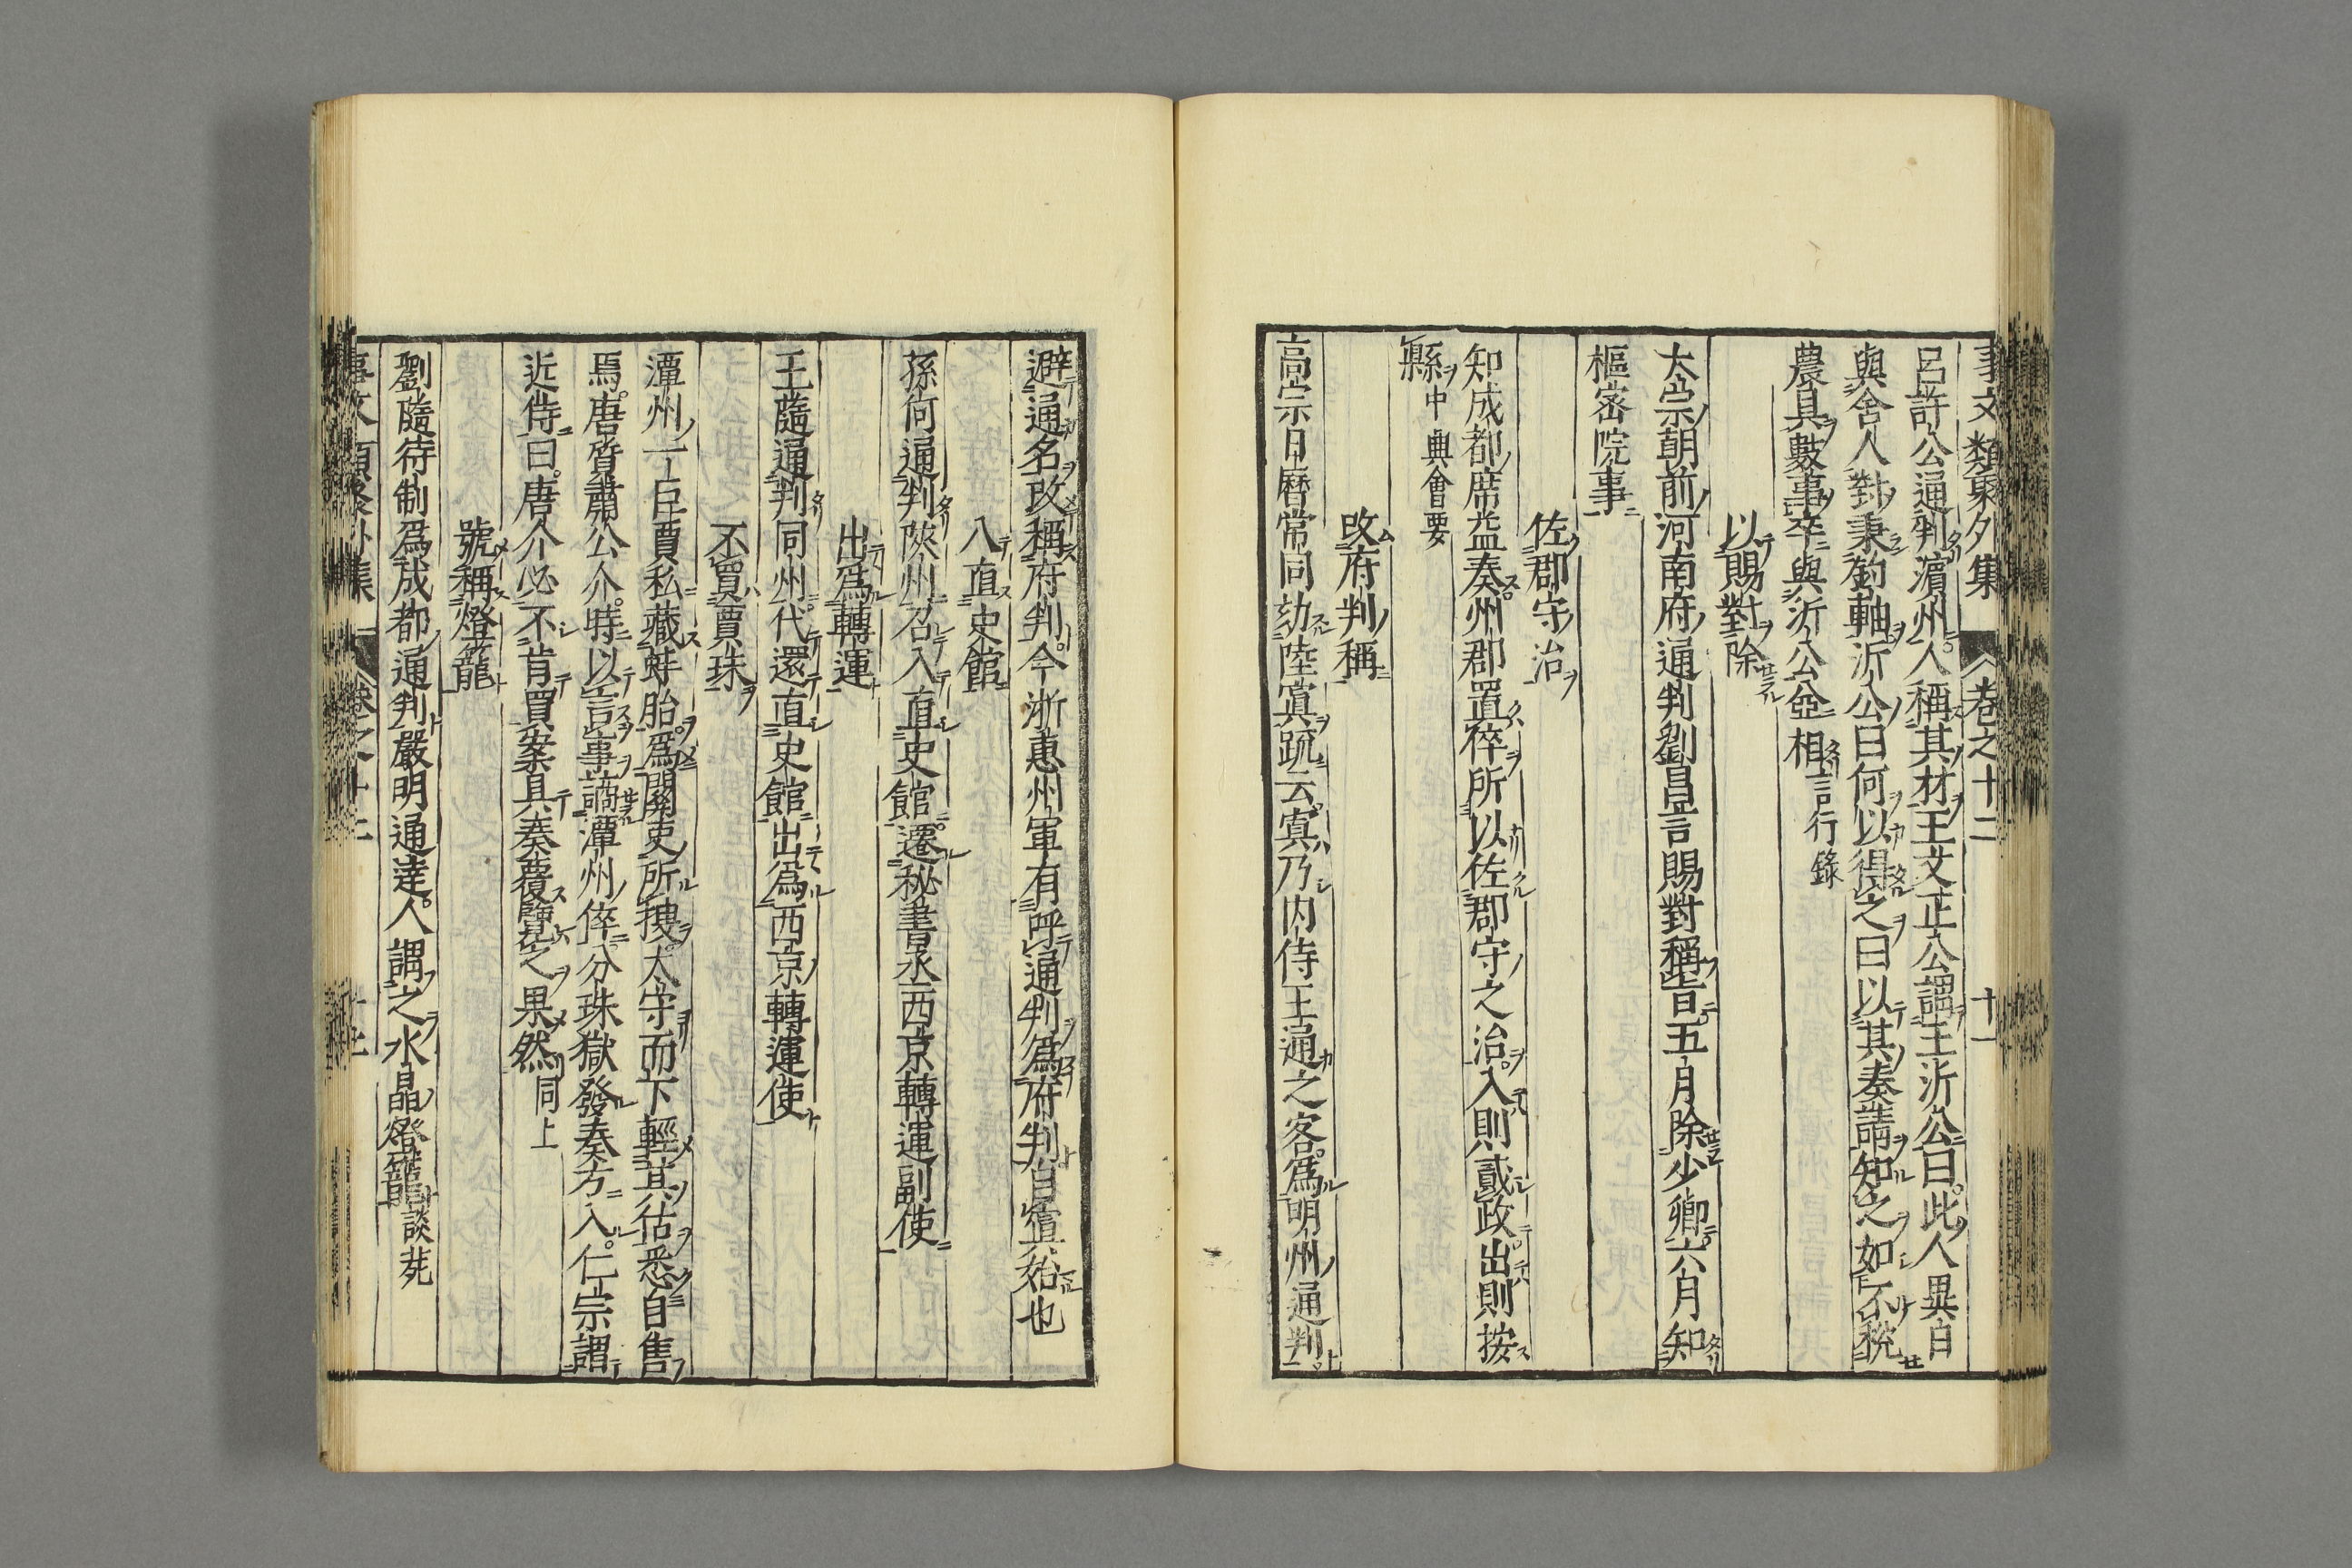 事文類聚外集 卷之十二 十一
呂許公通判濵州人稱其材王文正公謂王沂公曰此人異日
與舍人對秉鈞軸沂公曰何以得之曰以其奏請知之如不稅
農具數事卒與沂公並相言行錄
以賜對除
太宗朝前河南府通判劉昌言賜對稱旨五月除少卿六月知
樞密院事
佐郡守治
知成都席益奏州郡置倅所以佐郡守之治入則貳政出則按
縣中興會要
改府判稱
高宗日曆常同劾陸寘疏云寘乃内侍王通之客爲明州通判
避通名改稱府判今浙惠州軍有呼通判爲府判自寘始也
入直史館
孫何通判陝州召入直史館遷秘書丞西京轉運副使
出爲轉運
王隨通判同州代還直史館出爲西京轉運使
不買賈珠
潭州一巨賈私藏蚌胎爲關吏所搜太守而下輕其估悉自售
焉唐質肅公介時以言事謫潭州倅分珠獄發奏方入仁宗謂
近侍曰唐介必不肯買案具奏覆驗之果然同上
號稱燈籠
劉隨待制爲成都通判嚴明通達人謂之水晶燈籠談苑